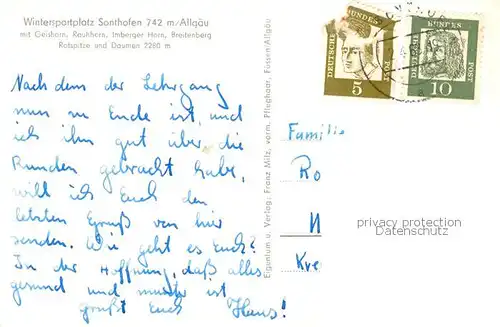 Wintersportplatz Sonthofen 742 m/Allgäu
mit Geishorn, Rauhhorn, Imberger Horn, Breitenberg
Rotspitze und Daumen 2280 m
Nach dem der Lehrgang
nun zu Ende ist, und
ich ihn gut über die
Runden gebracht habe,
will ich Euch den
letzten Gruß von hier
senden. Wie geht es Euch?
In der Hoffnung, daß alles
gesund und munter ist
grüßt Euch Hans!
Eigentum u. Verlag: Franz Milz, vorm. Pfleghaar, Füssen/Allgäu
DEUTSCHE BUNDESPOST
5
DEUTSCHE BUNDESPOST
10
Familie
Ro
H
Kre
privacy protection
Datenschutz